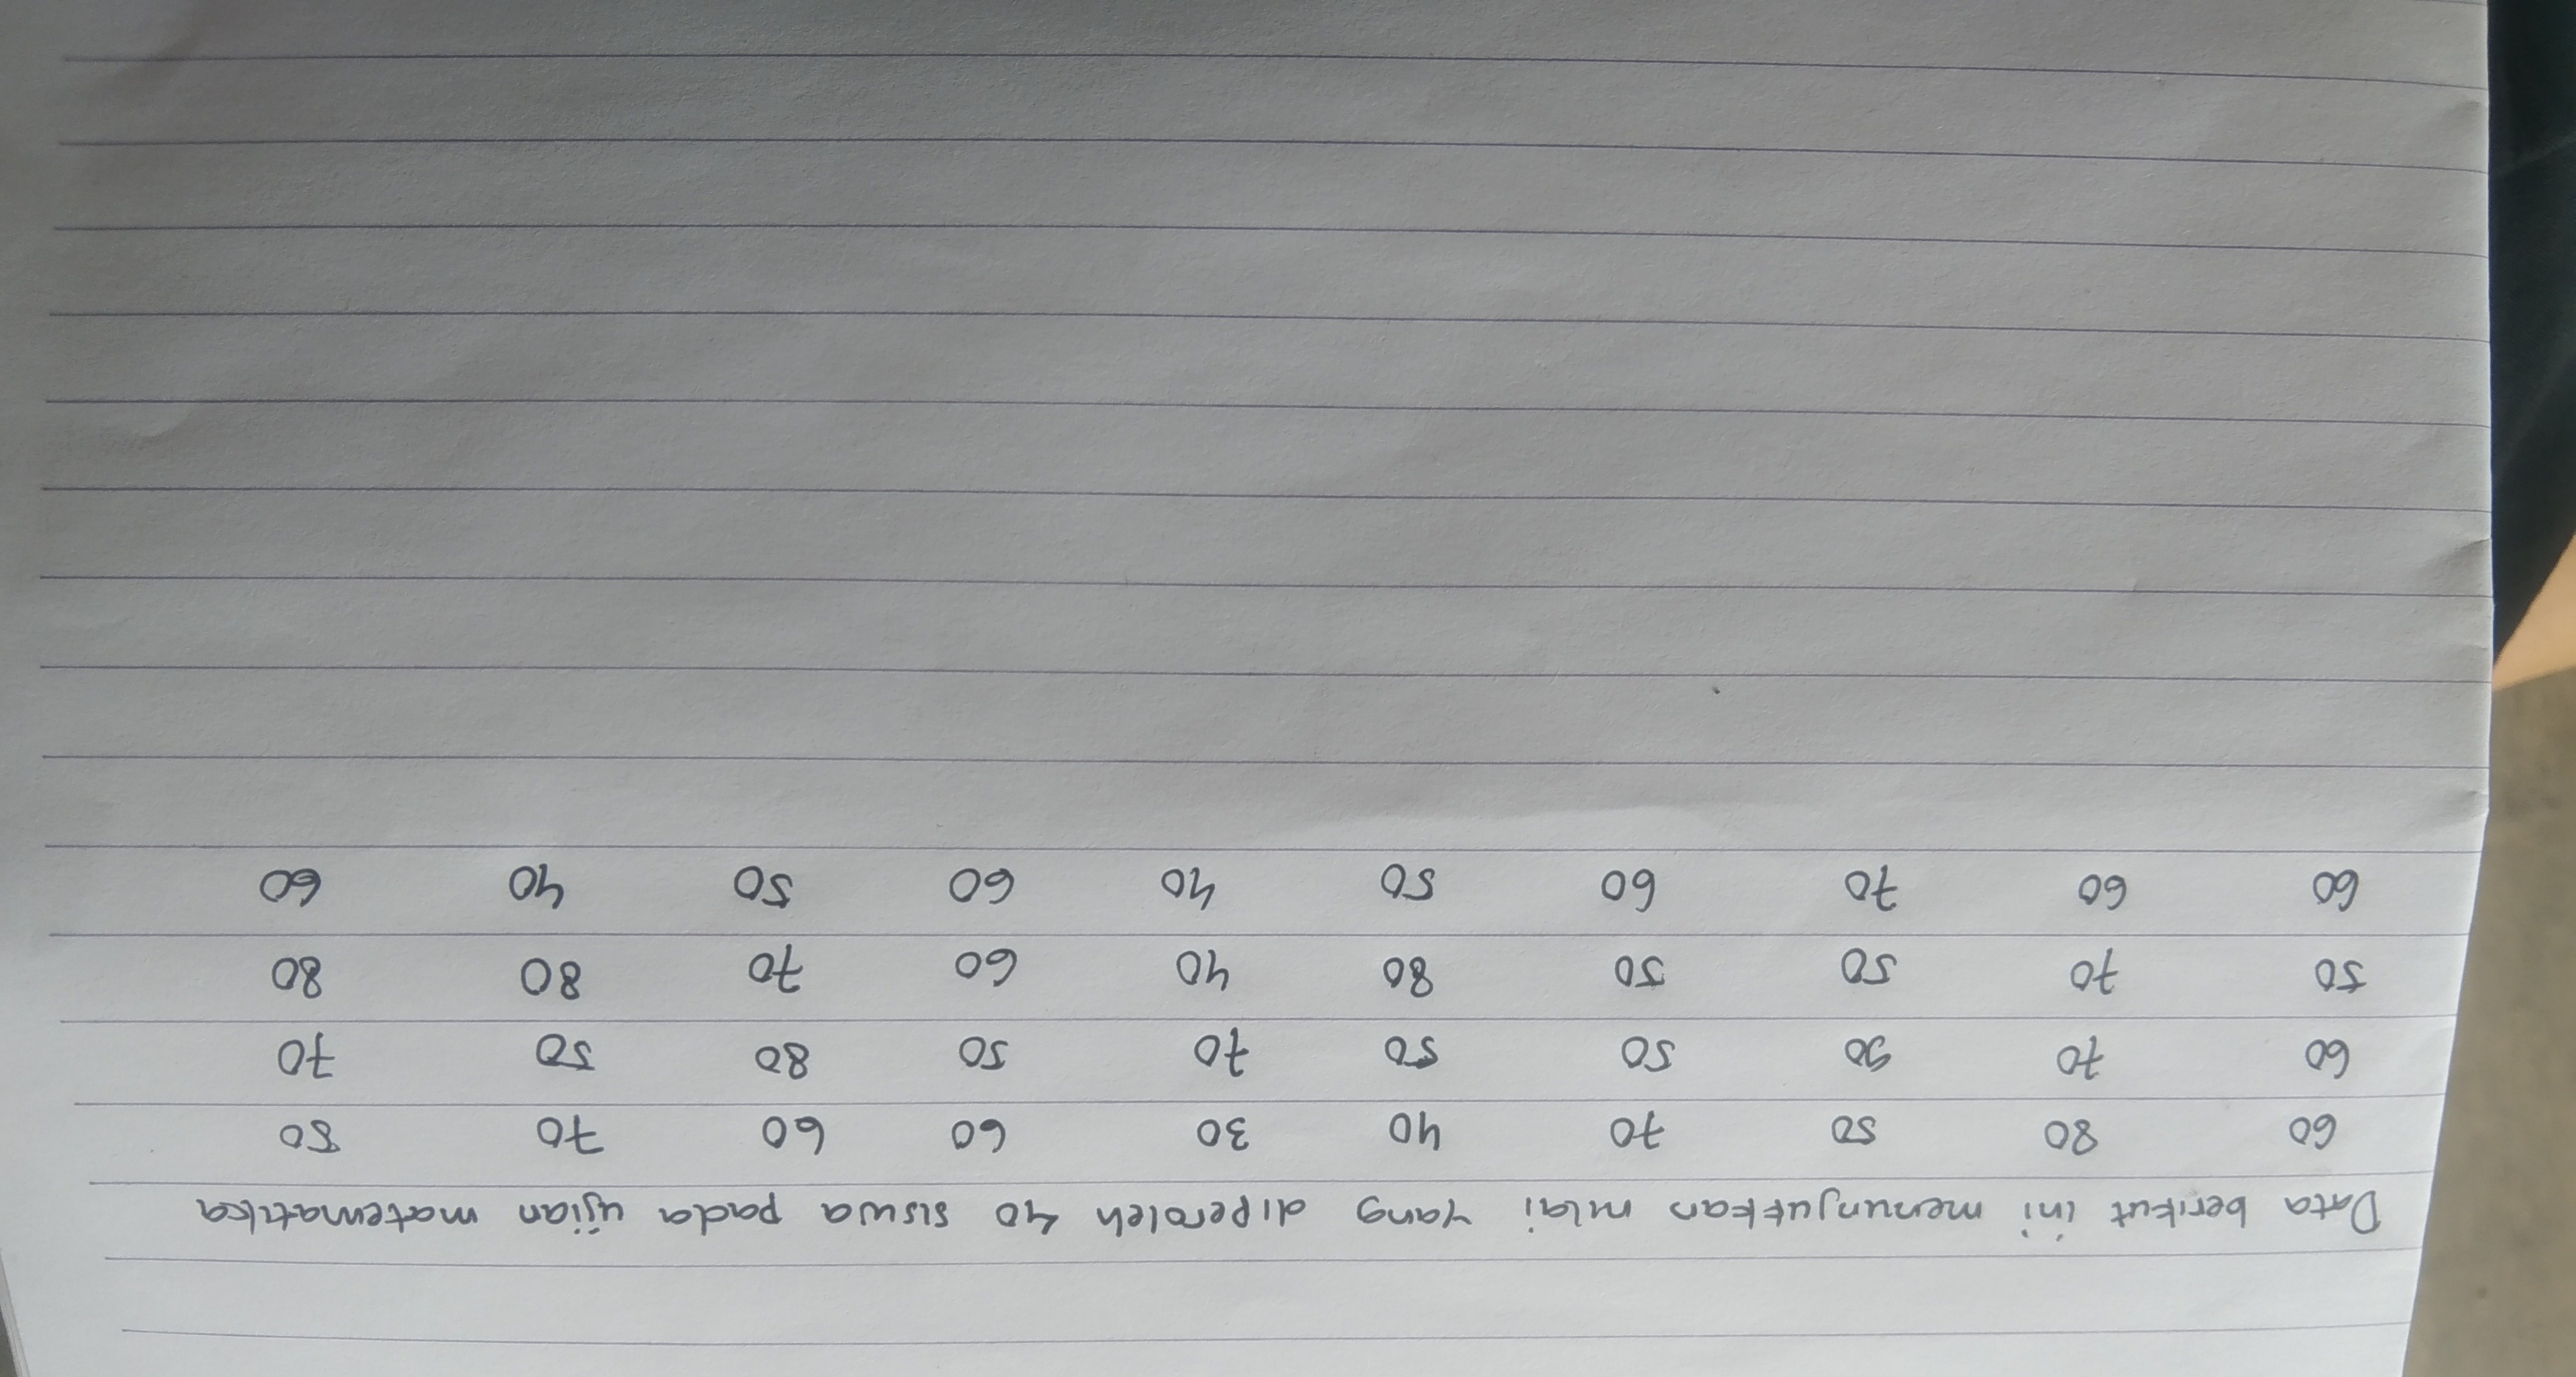 Data berikut ini menunjukkan nilai yang diperoleh 40 siswa pada ujian matematika
60 80 50 70 40 30 60 60 70 50
60 70 90 50 50 70 50 80 50 70
50 70 50 50 80 40 60 70 80 80
60 60 70 60 50 40 60 50 40 60